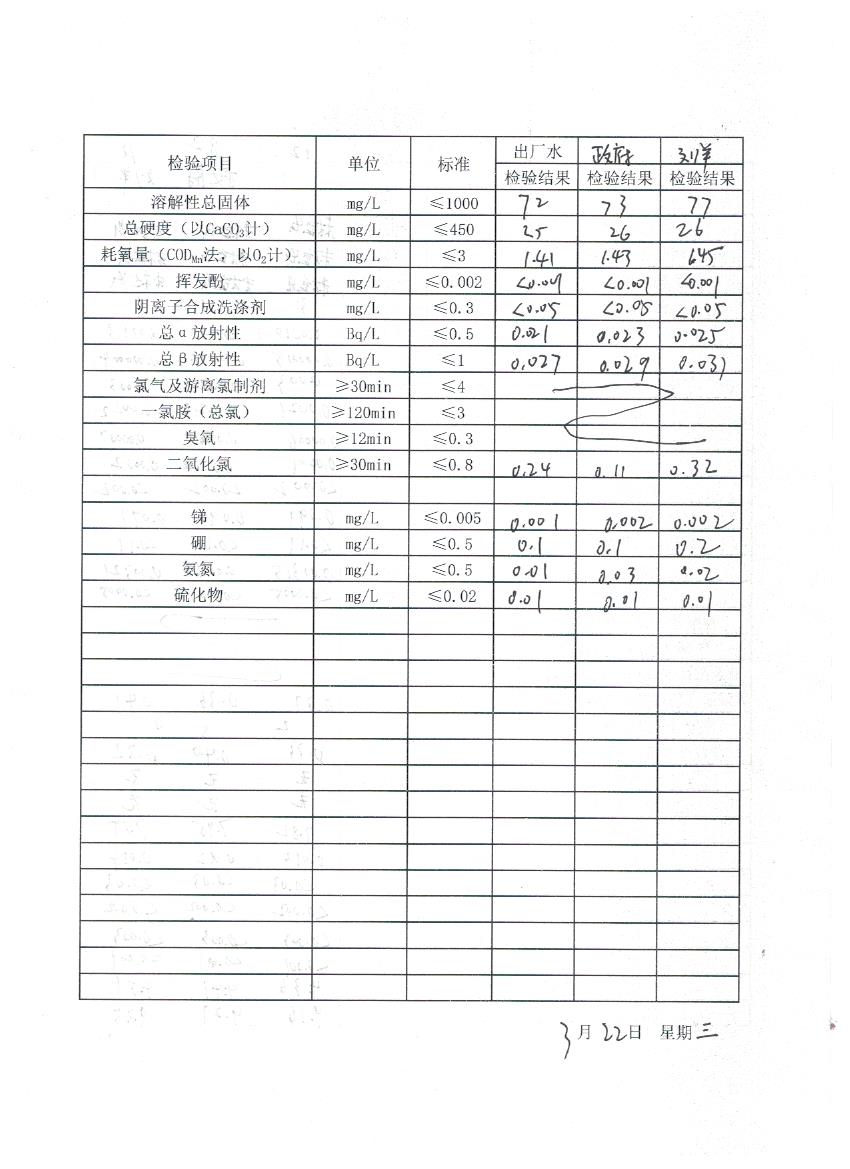 检验项目 单位 标准 出厂水 政府 刘洋
检验结果 检验结果 检验结果
溶解性总固体 mg/L ≤1000 72 73 77
总硬度（以CaCO₃计） mg/L ≤450 25 26 26
耗氧量（CODMn法，以O₂计） mg/L ≤3 1.41 1.43
挥发酚 mg/L ≤0.002 <0.001 <0.001 <0.001
阴离子合成洗涤剂 mg/L ≤0.3 <0.05 <0.05 <0.05
总α放射性 Bq/L ≤0.5 0.021 0.023 0.025
总β放射性 Bq/L ≤1 0.027 0.029 0.031
氯气及游离氯制剂 ≥30min ≤4
一氯胺（总氯） ≥120min ≤3
臭氧 ≥12min ≤0.3
二氧化氯 ≥30min ≤0.8 0.24 0.11 0.32
锑 mg/L ≤0.005 0.001 0.002 0.002
硼 mg/L ≤0.5 0.1 0.1 0.2
氨氮 mg/L ≤0.5 0.01 0.03 0.02
硫化物 mg/L ≤0.02 0.01 0.01 0.01
3月22日 星期三